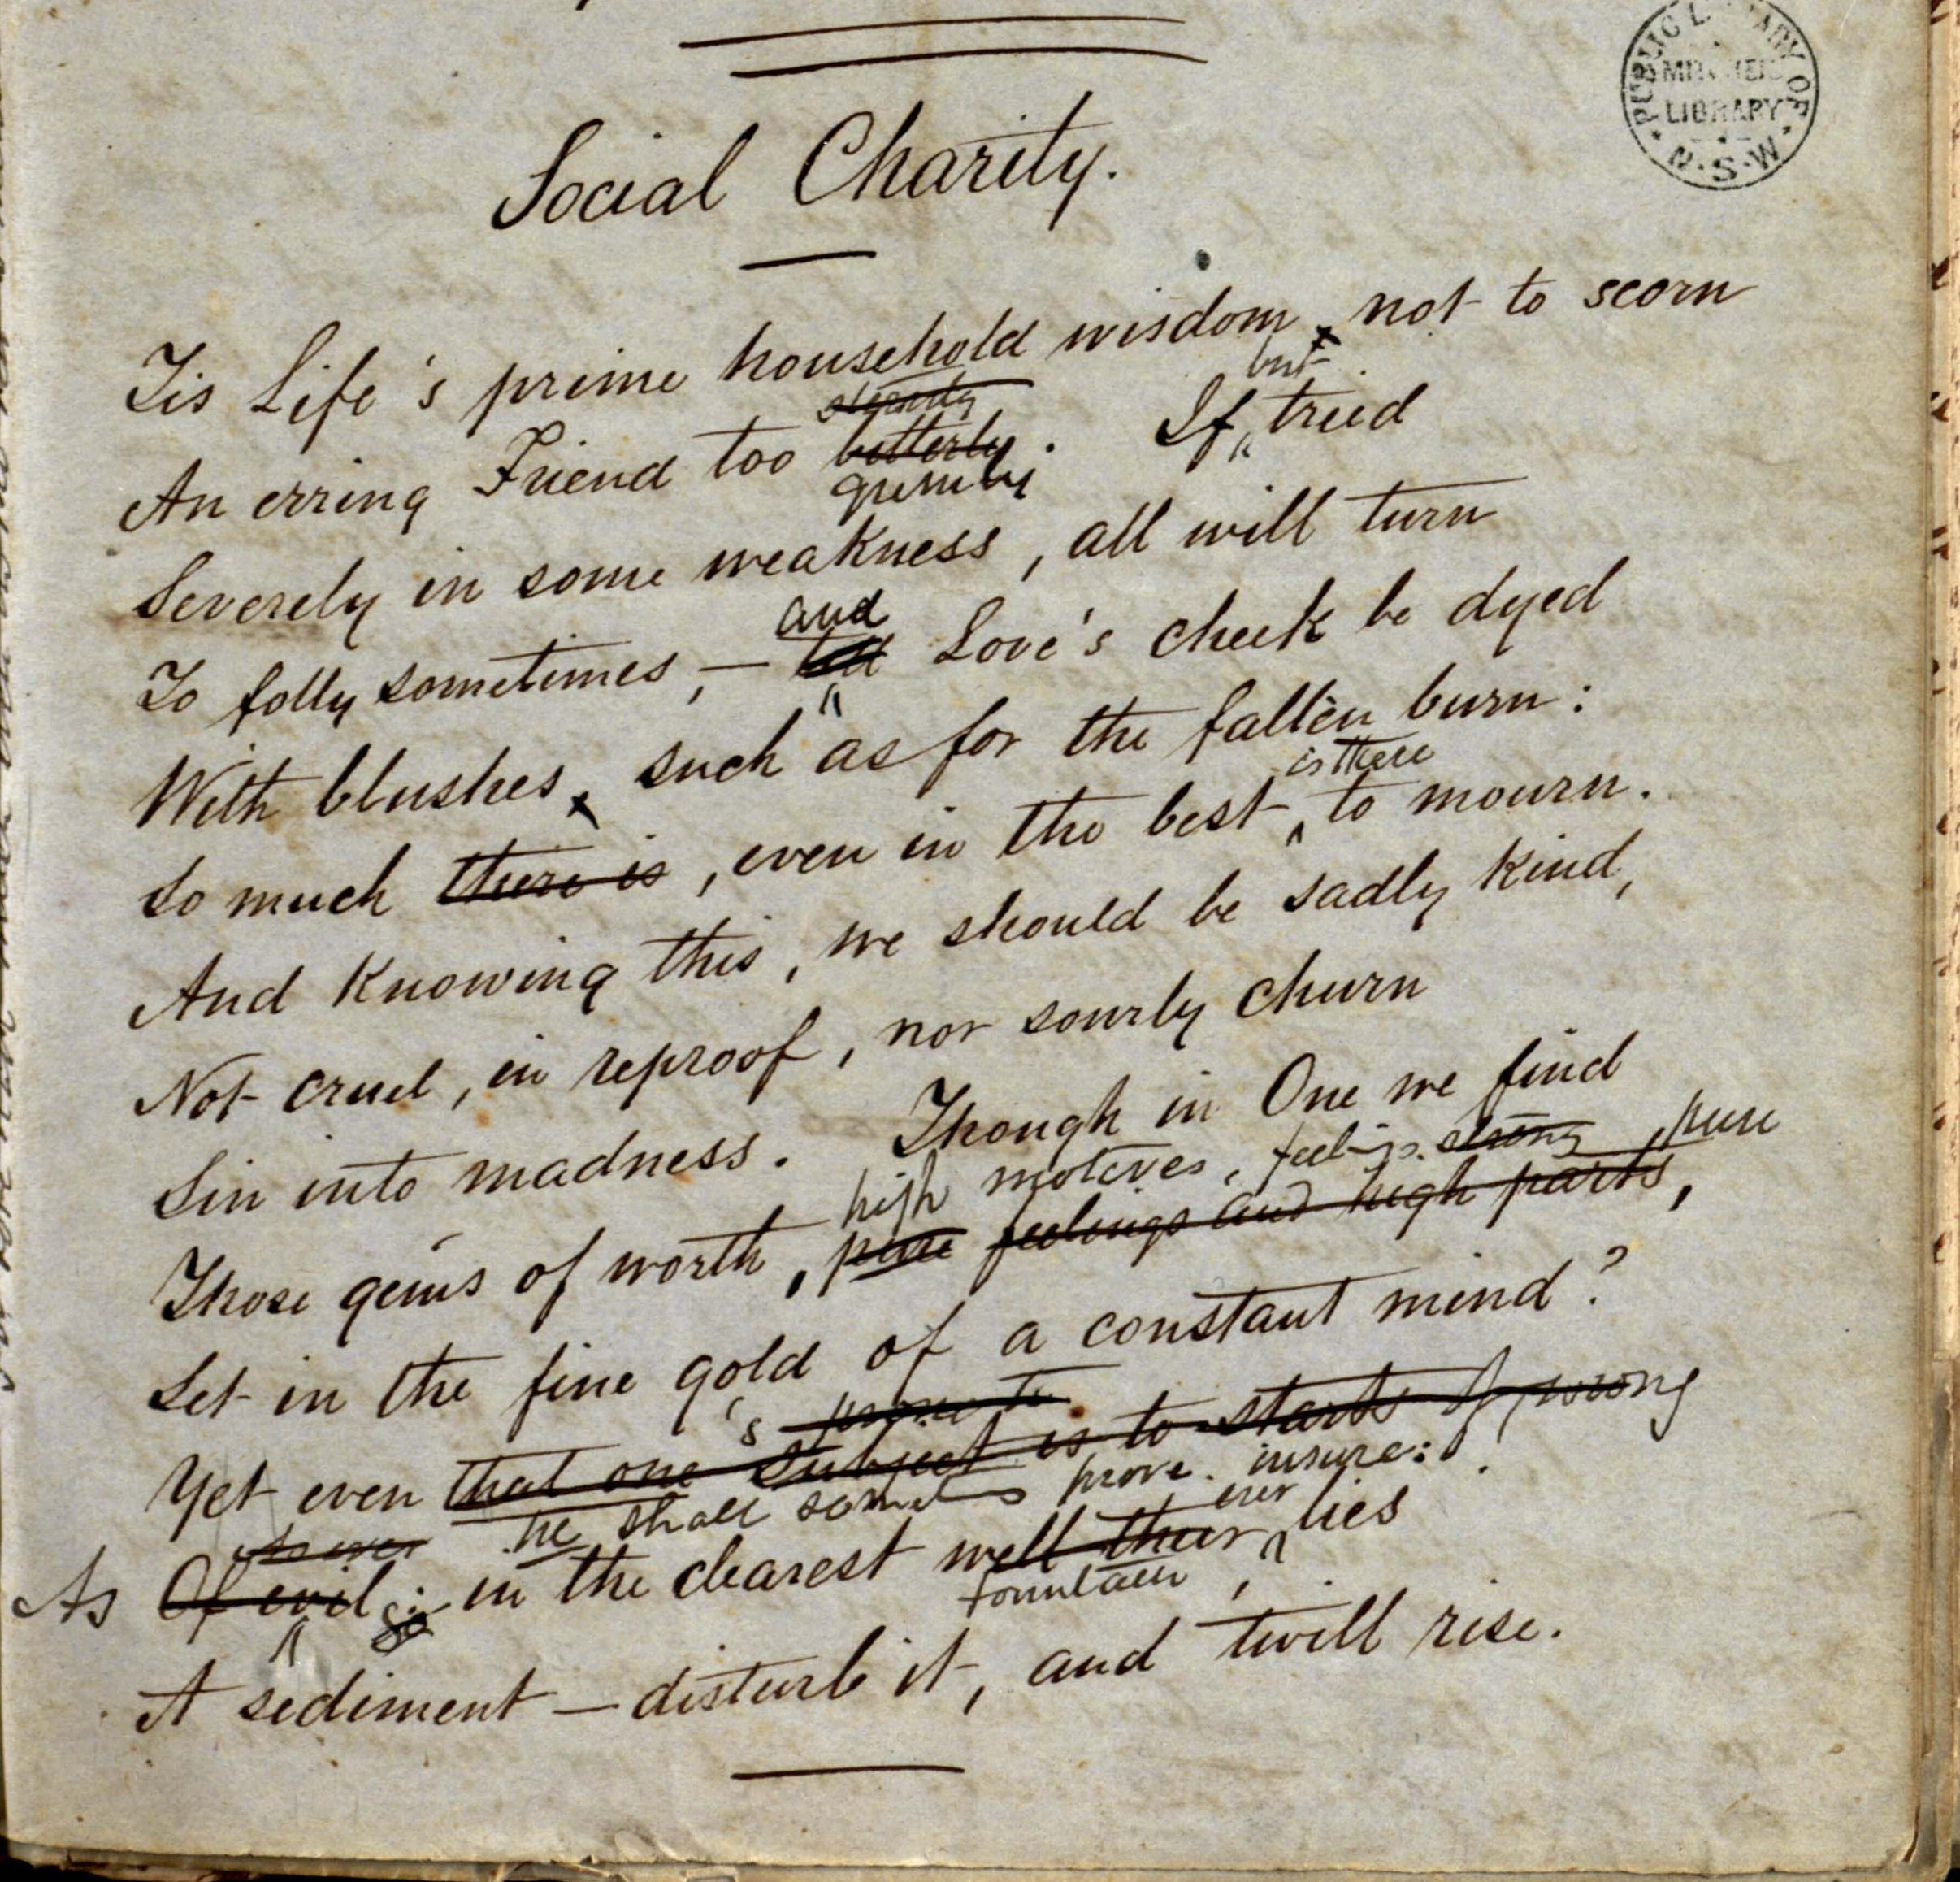 PUBLIC LIBRARY OF
MITCHELL
LIBRARY
N.S.W
Social Charity.
Tis Life's prime household wisdom, not to scorn
but
sternly
An erring Friend too bitterly. If tried
grimly
Severely in some weakness, all will turn
and
To folly sometimes, — Love's cheek be dyed
With blushes, such as for the fallèn burn:
is there
So much there is, even in the best, to mourn.
And Knowing this, we should be sadly Kind,
Not cruel, in reproof, nor sourly churn
Sin into madness. Though in One we find
high motives, feelings strong pure
Those gems of worth, pure feelings and high parts,
Set in the fine gold of a constant mind?
's prone to
Yet even that one subject is to starts of wrong
he shall sometimes prove insure:
ever
As Of evil; in the clearest well their lies
fountain,
A sediment — disturb it, and twill rise.